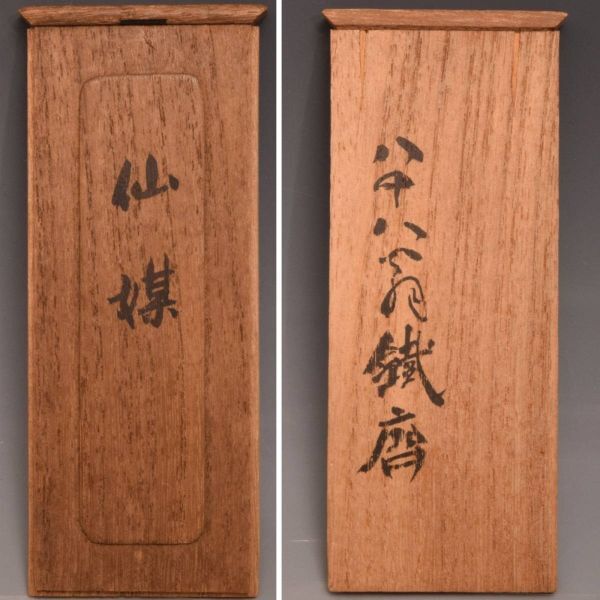 仙媒
八十八翁鐵齋